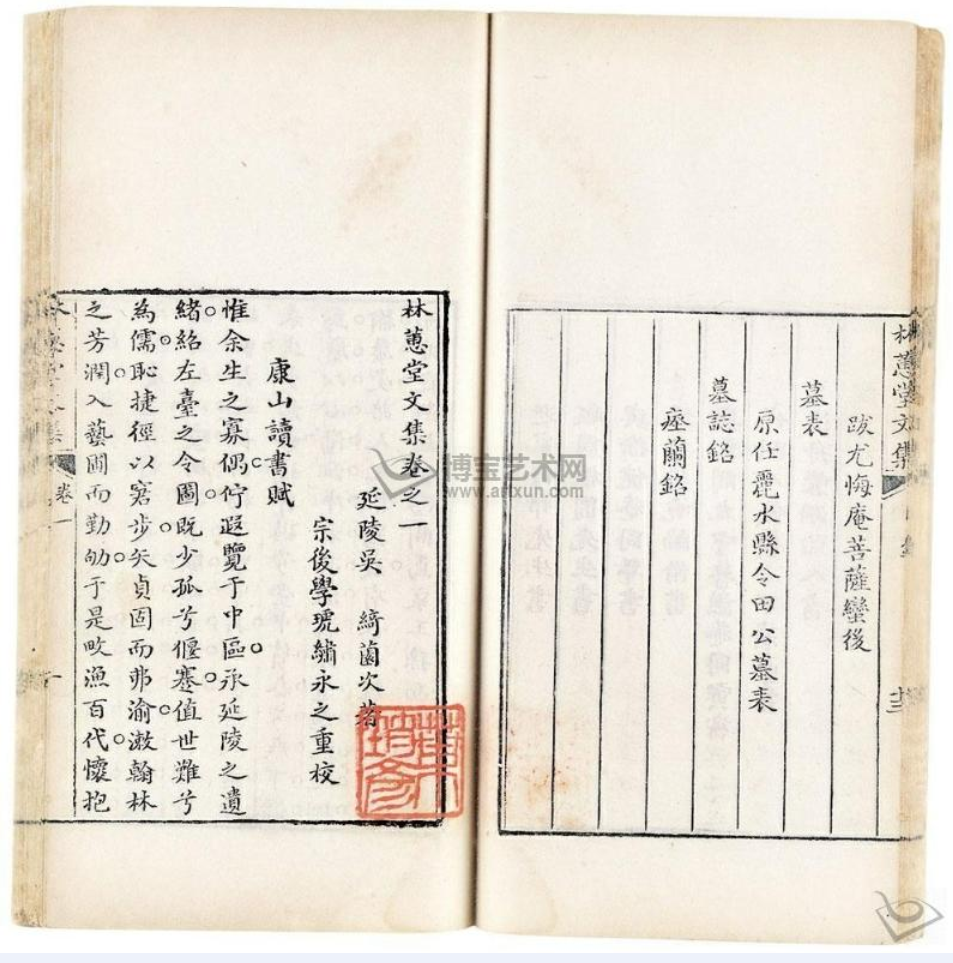 跋尤悔庵菩薩蠻後
墓表
原任麗水縣令田公墓表
墓誌銘
瘞蘭銘
林蕙堂文集
林蕙堂文集卷之一
延陵吳　綺薗次著
宗後學琥繡永之重校
康山讀書賦
惟余生之寡偶佇遐覽于中區承延陵之遺
緒紹左臺之令圖既少孤兮偃蹇值世難兮
為儒恥捷徑以窘步矢貞固而弗渝漱翰林
之芳潤入藝圃而勤劬于是畋漁百代懷抱
卷一
博宝艺术网
www.artxun.com